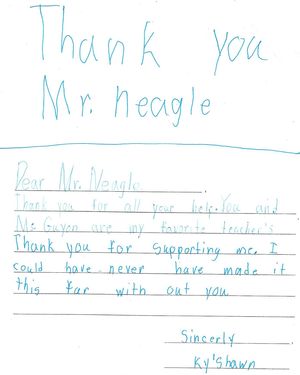 Thank you
Mr. Neagle
Dear Mr. Neagle
Thank you for all your help. You and
Ms. Guyen are my favorite teacher's
Thank you for supporting me. I
could have never have made it
this far with out you
Sincerly
Ky'Shawn